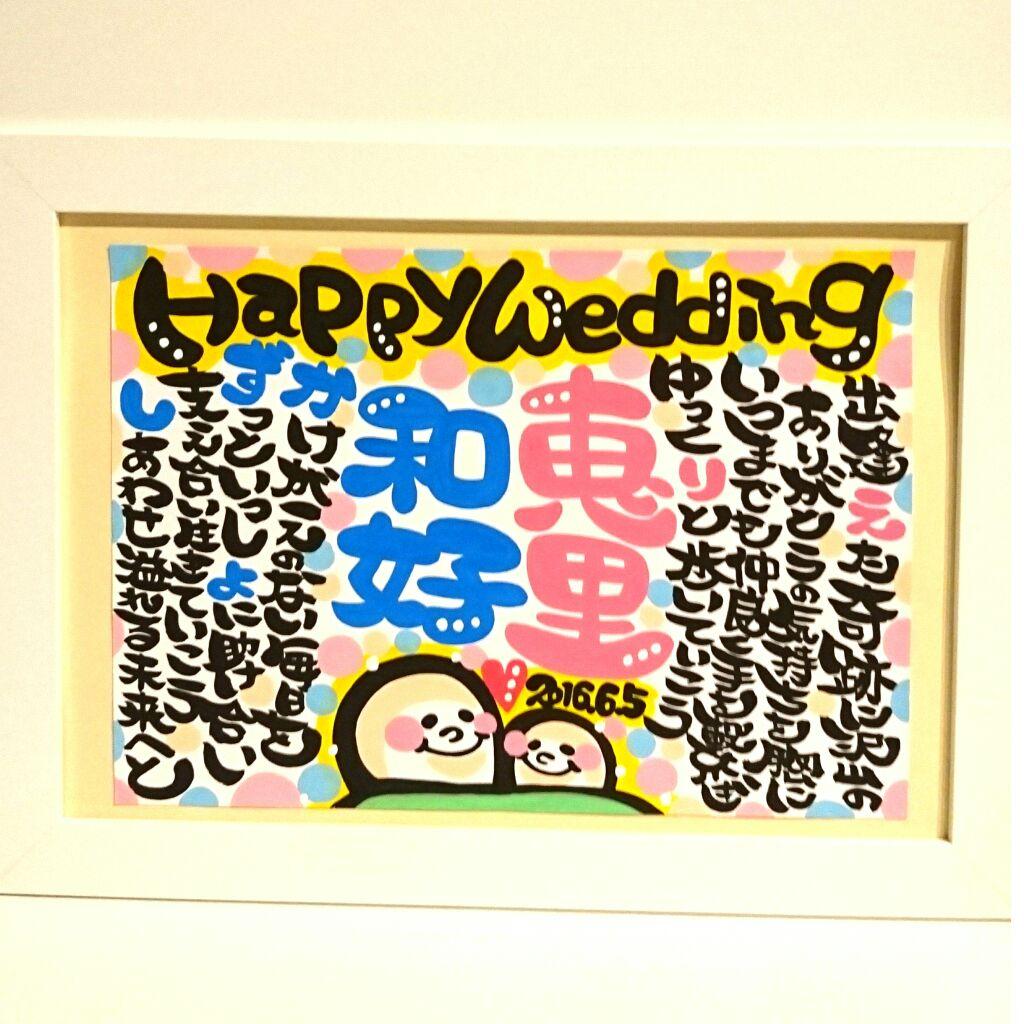 Happy Wedding
出逢えた奇跡に沢山の
ありがとうの気持ちを胸に
いつまでも仲良く手を繋ぎ
ゆっくりと歩いていこう
恵里
和好
かけがえのない毎日を
ずっといっしょに助け合い
支え合い生きていこう
しあわせ溢れる未来へと
2016.6.5